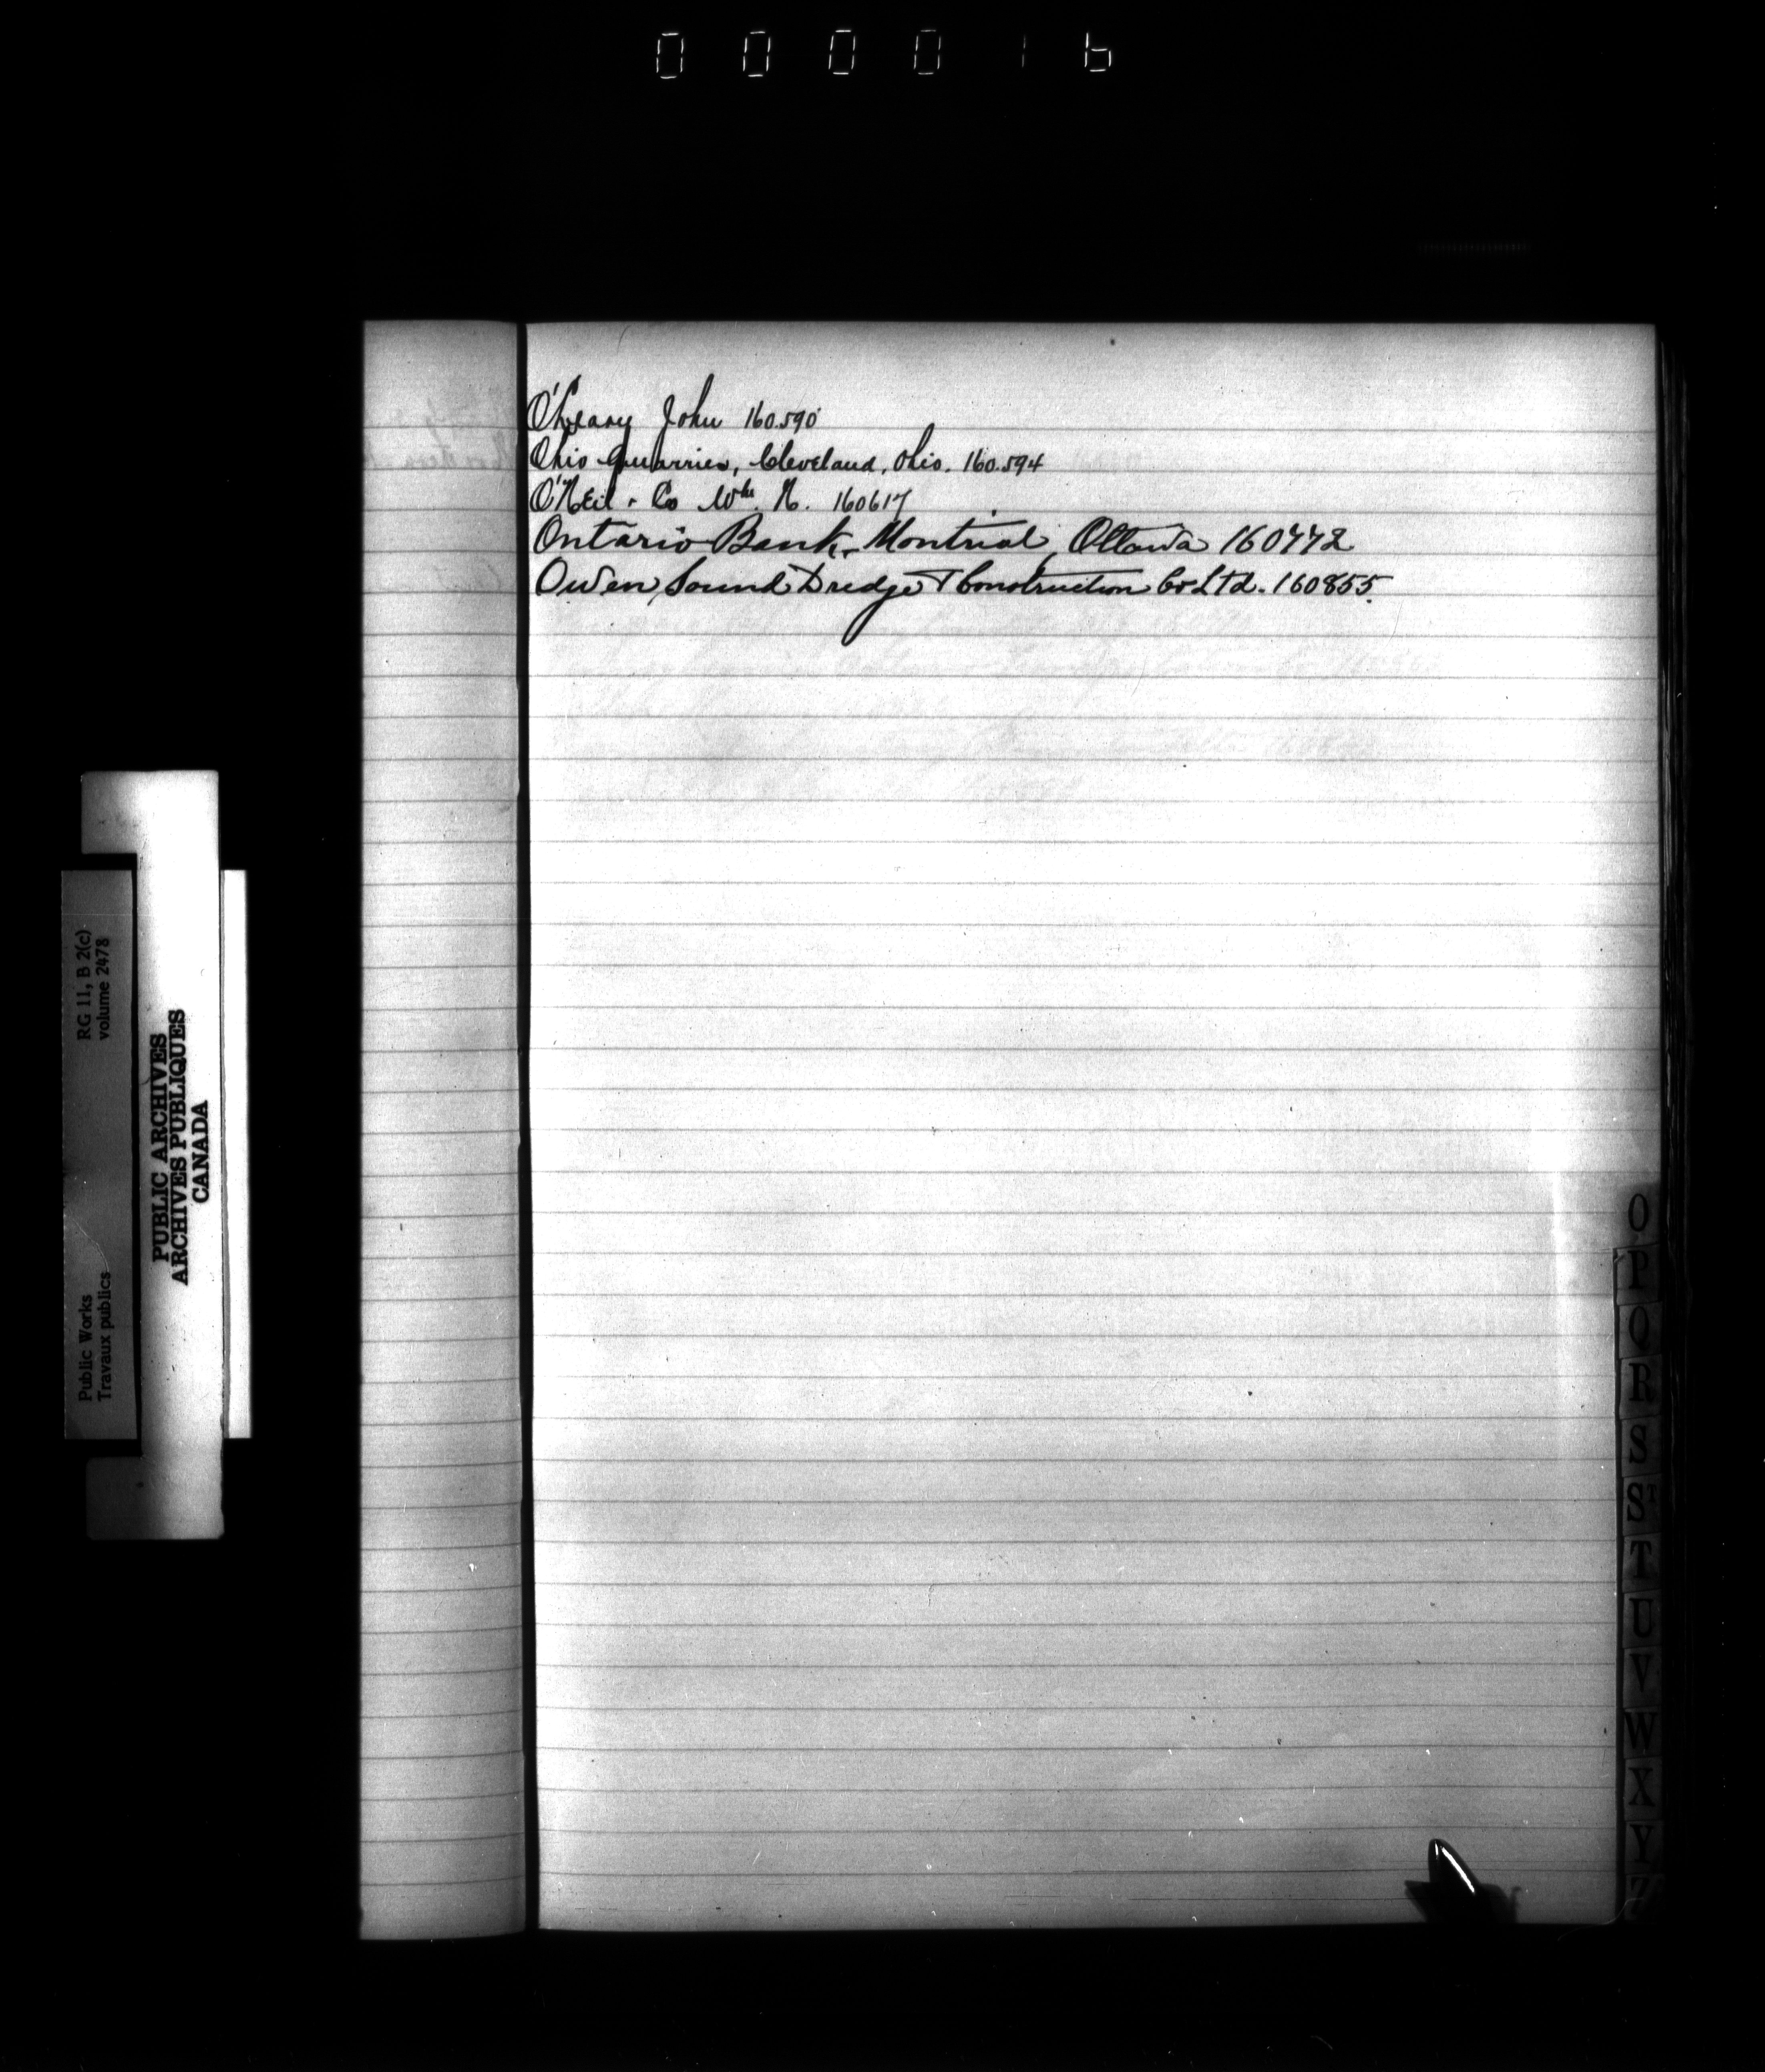 000016
O'Leary John 160.590
Ohio Quarries, Cleveland, Ohio. 160.594
O'Neil & Co Wm. H. 160617
Ontario Bank, Montreal, Ottawa 160772
Owen Sound Dredge & Construction Co Ltd. 160855
RG 11, B 2(c)
volume 2478
Public Works
Travaux publics
PUBLIC ARCHIVES
ARCHIVES PUBLIQUES
CANADA
O
P
Q
R
S
ST
T
U
V
W
X
Y
Z